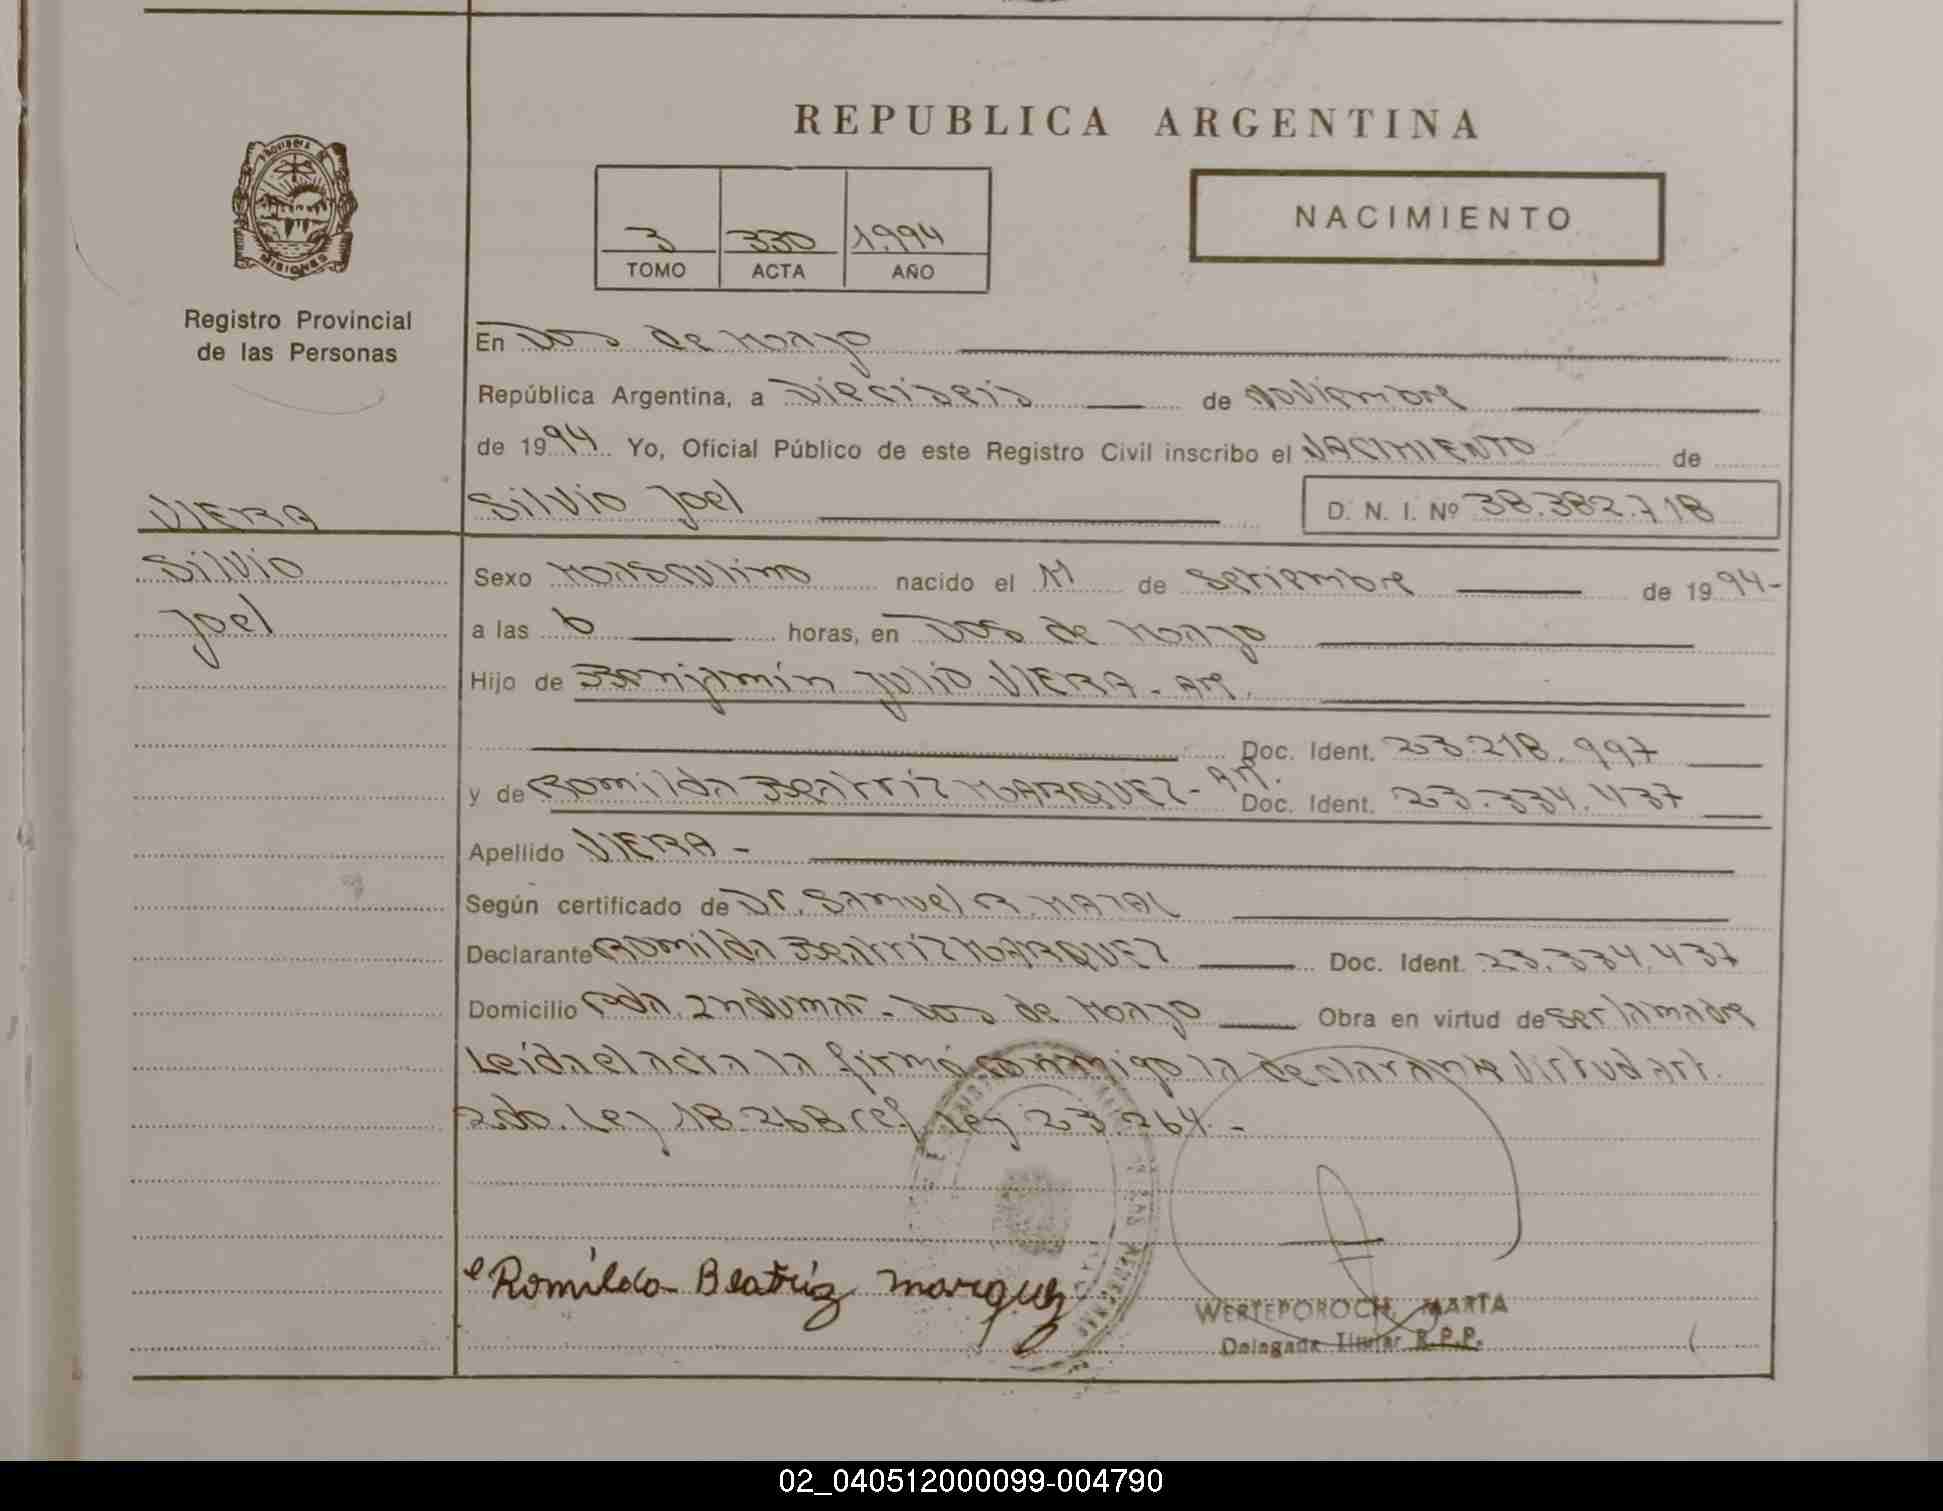 REPUBLICA ARGENTINA
PROVINCIA DE
MISIONES
3 330 1994
TOMO ACTA AÑO
NACIMIENTO
Registro Provincial
de las Personas
En Dos de Mayo
República Argentina, a Dieciseis de Noviembre
de 1994 Yo, Oficial Público de este Registro Civil inscribo el NACIMIENTO de
VIERA
Silvio Joel D. N. I. Nº 38.382.718
Silvio
Sexo Masculino nacido el 11 de Setiembre de 1994-
Joel
a las 6 horas, en Dos de Mayo
Hijo de Benjamín Julio VIERA - Ar.
Doc. Ident. 23.218.997
y de Romilda Beatriz MARQUEZ - Ar. Doc. Ident. 23.334.437
Apellido VIERA -
Según certificado de Dr. Samuel R.
Declarante Romilda Beatriz MARQUEZ Doc. Ident. 23.334.437
Domicilio Pda. Indumar - Dos de Mayo Obra en virtud de ser la madre
Leida el acta la firmó conmigo la declarante virtud art.
2do. Ley 18.268 ref. Ley 23.264. -
Romilda Beatriz Marquez
WERTEPOROCH, MARTA
Delegada Titular R.P.P.
02_040512000099-004790